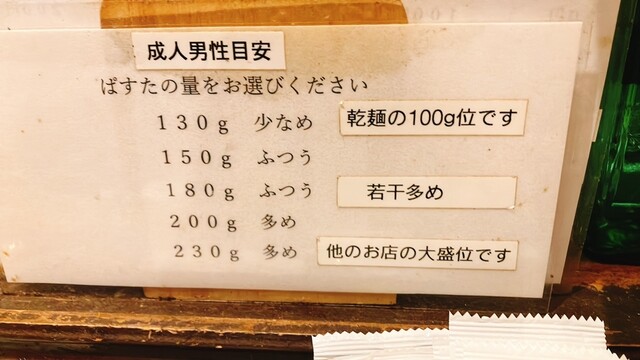 成人男性目安
ぱすたの量をお選びください
１３０ｇ 少なめ 乾麺の100g位です
１５０ｇ ふつう
１８０ｇ ふつう 若干多め
２００ｇ 多め
２３０ｇ 多め 他のお店の大盛位です